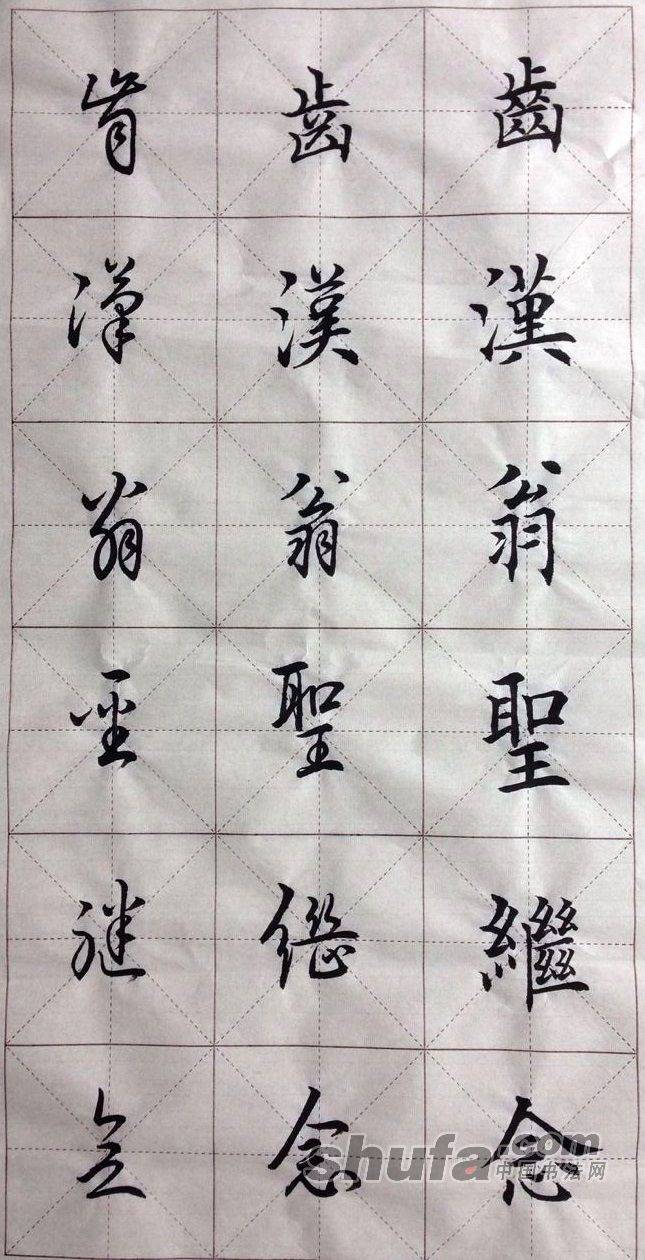 齒漢翁聖繼念
歯漢翁聖継念
齒漢翁聖繼念
shufa.com
中国书法网